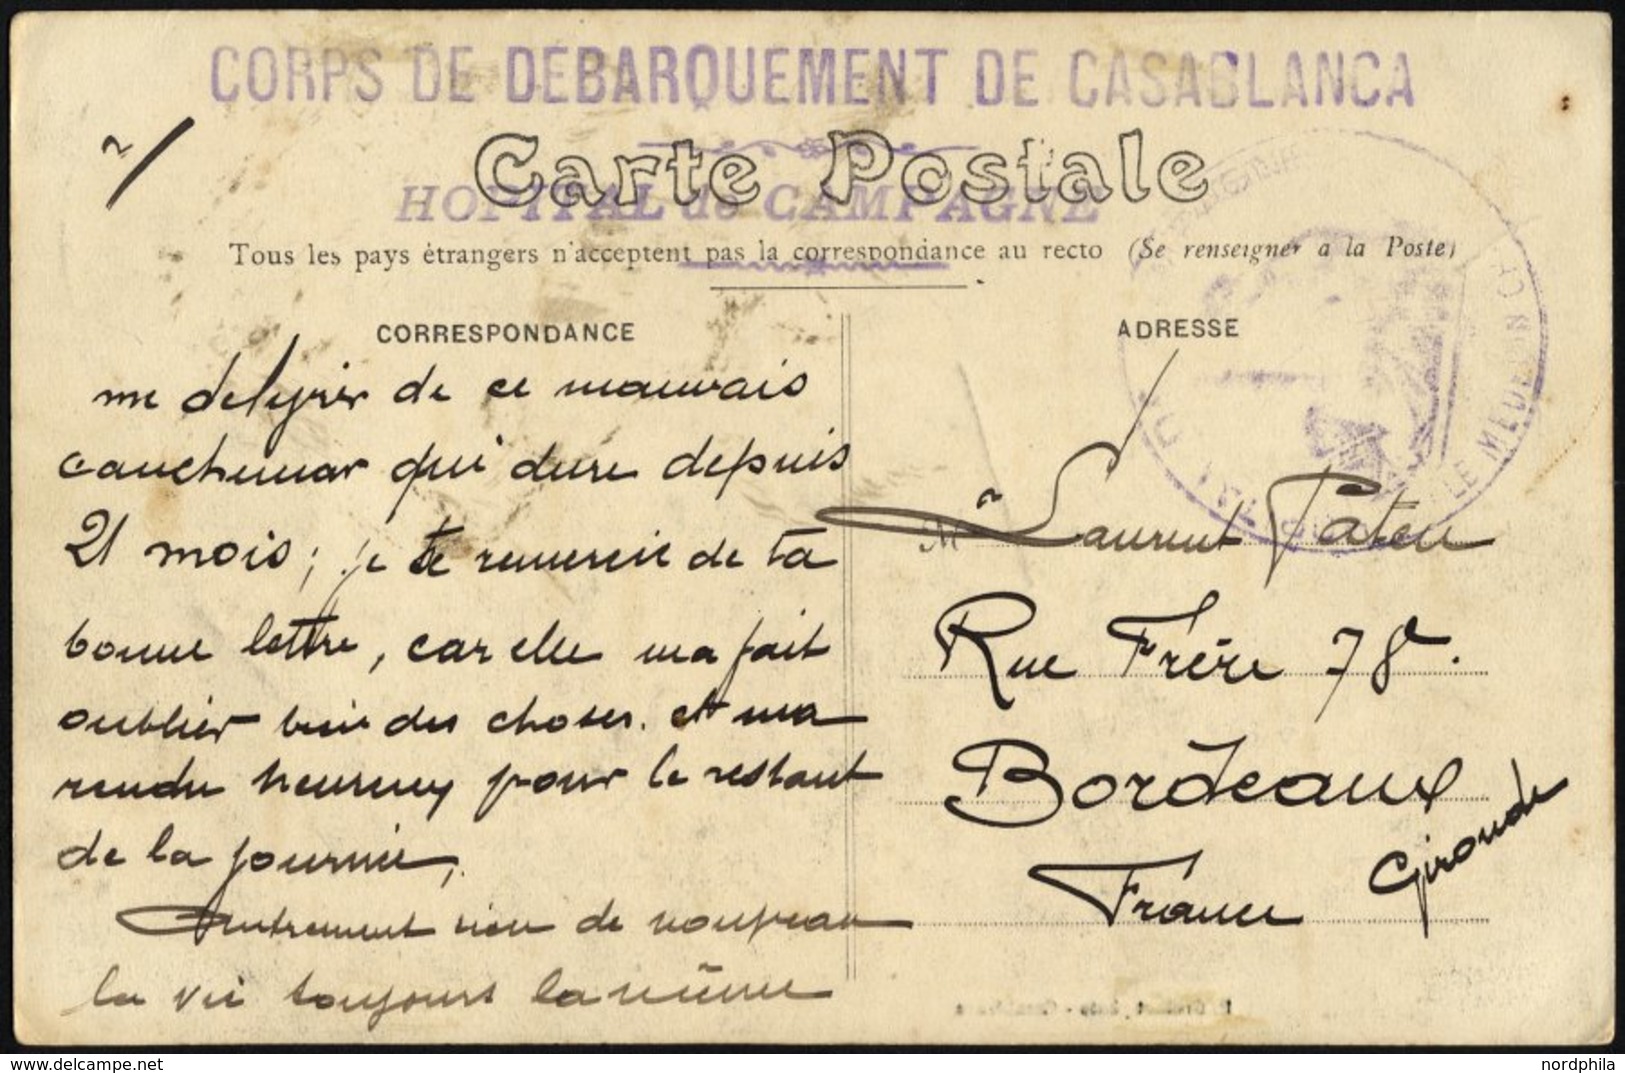 CORPS DE DEBARQUEMENT DE CASABLANCA
2/
Carte Postale
HOPITAL de CAMPAGNE
Tous les pays étrangers n'acceptent pas la correspondance au recto (Se renseigner a la Poste)
CORRESPONDANCE
me de de ce mauvais
cauchemar qui dure depuis
21 mois ; je te remercie de ta
bonne lettre, car elle ma fait
oublier bien des choses. et ma
rendu heureux pour le restant
de la journée,
Autrement rien de nouveau
la vie toujours la même
ADRESSE
LE MEDECIN
Mr Laurent Pateu
Rue Frère 78.
Bordeaux
Gironde
France
nordphila